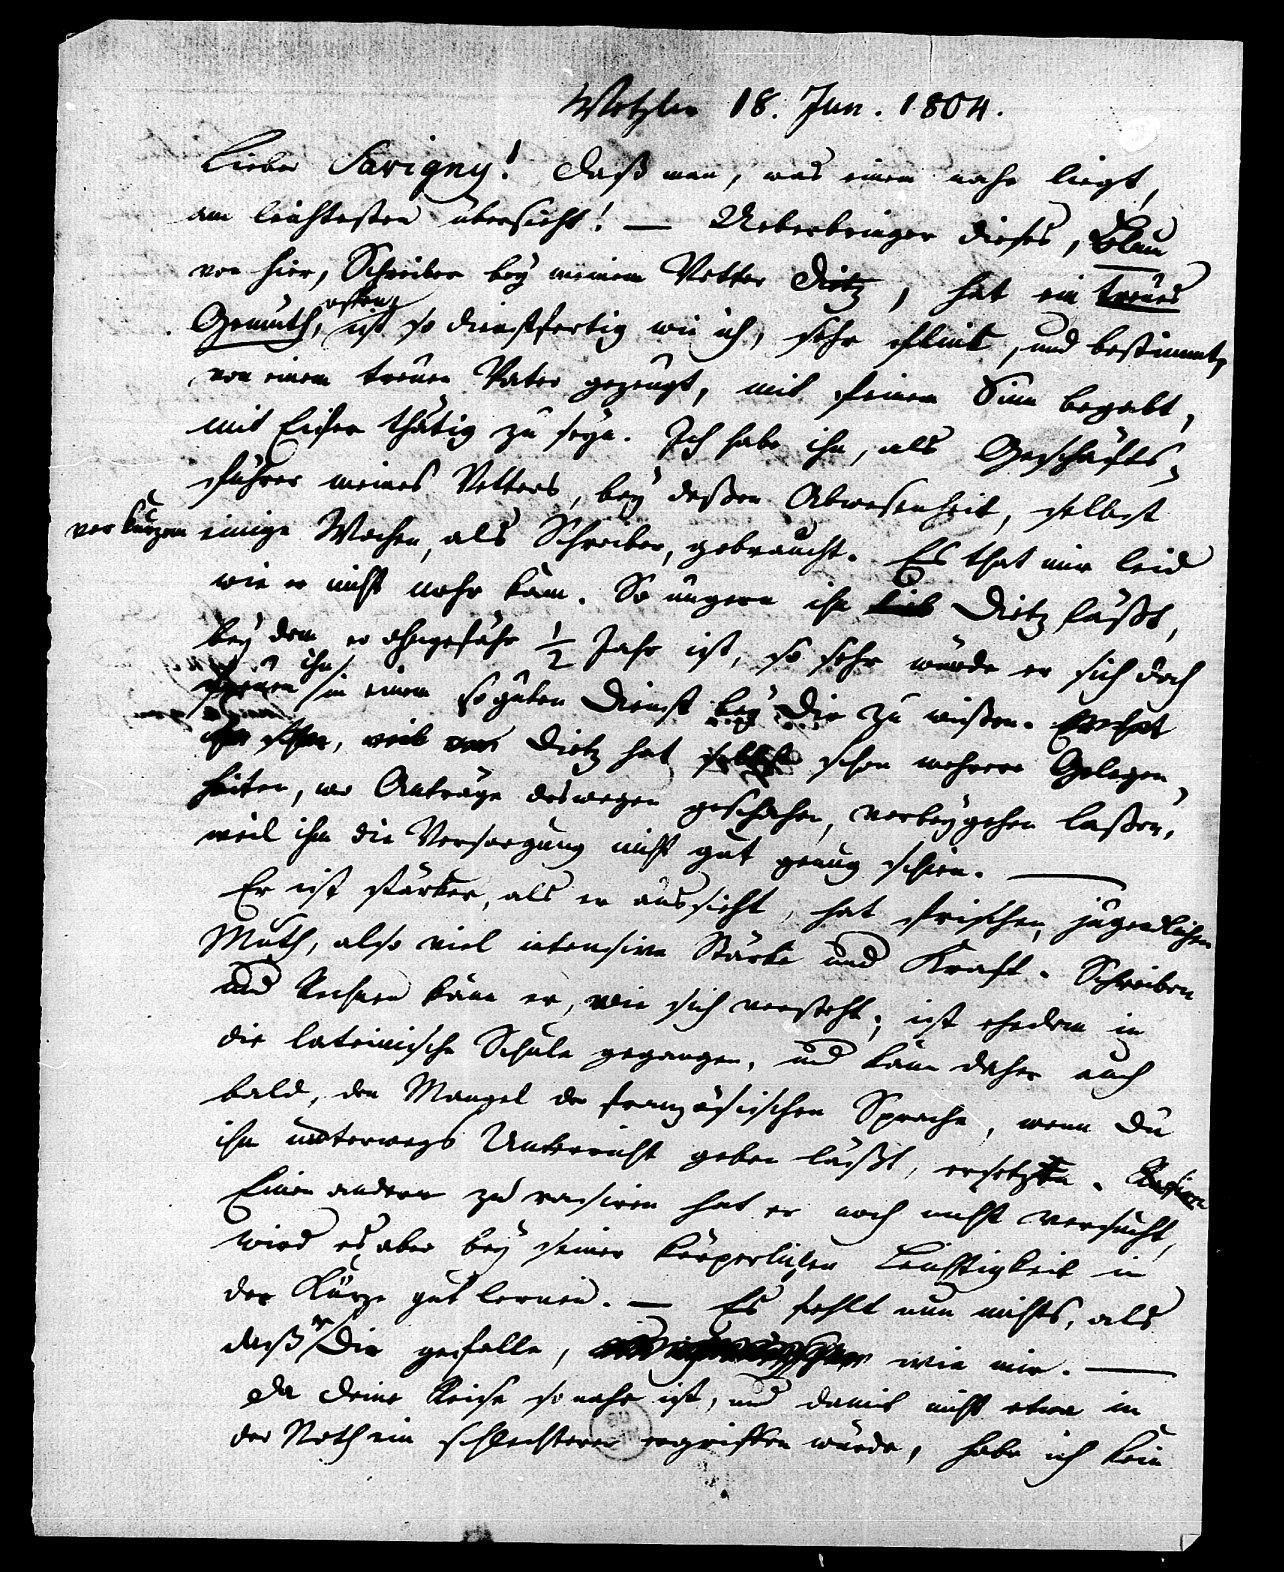 Wetzlar 18. Jun. 1804.
Lieber Savigny! Daß man, was einem nahe liegt,
am leichtesten übersieht! — Ueberbringer dieses, Blum
von hier, Schreiber bey meinem Vetter Dietz, hat ein treues
Gemüth, ist offen, so dienstfertig wie ich, sehr flink, und bestimmt,
von einem treuen Vater gezeugt, mit feinem Sinn begabt,
mit Eifer thätig zu seyn. Ich habe ihn, als Geschäfts-
führer meines Vetters, bey deßen Abwesenheit, selbst
vor kurzem einige Wochen, als Schreiber, gebraucht. Es that mir leid
wie er nicht mehr kam. So ungern ihn Dietz läßt,
bey dem er ohngefähr ½ Jahr ist, so sehr würde er sich doch
freuen ihn in einem so guten Dienst bey Dir zu wißen.
Dietz hat selbst schon mehrere Gelegen-
heiten, wo Anträge deswegen geschahen, vorbeygehen laßen,
weil ihm die Versorgung nicht gut genug schien. —
Er ist stärker, als er aussieht, hat frischen, jugendlichen
Muth, also viel intensive Stärke und Kraft. Schreiben
und Rechnen kann er, wie sich versteht; ist ehedem in
die lateinische Schule gegangen, und kann daher auch
bald, den Mangel der französischen Sprache, wenn Du
ihm unterwegs Unterricht geben läßt, ersetzen.
Einen andern zu rasiren hat er noch nicht versucht,
wird es aber bey seiner körperlichen Leichtigkeit in
der Kürze gut lernen. — Es fehlt nun nichts, als
daß er Dir gefalle, wie mir. —
Da Deine Reise so nahe ist, und damit nicht etwa in
der Noth ein schlechterer ergriffen würde, habe ich kein